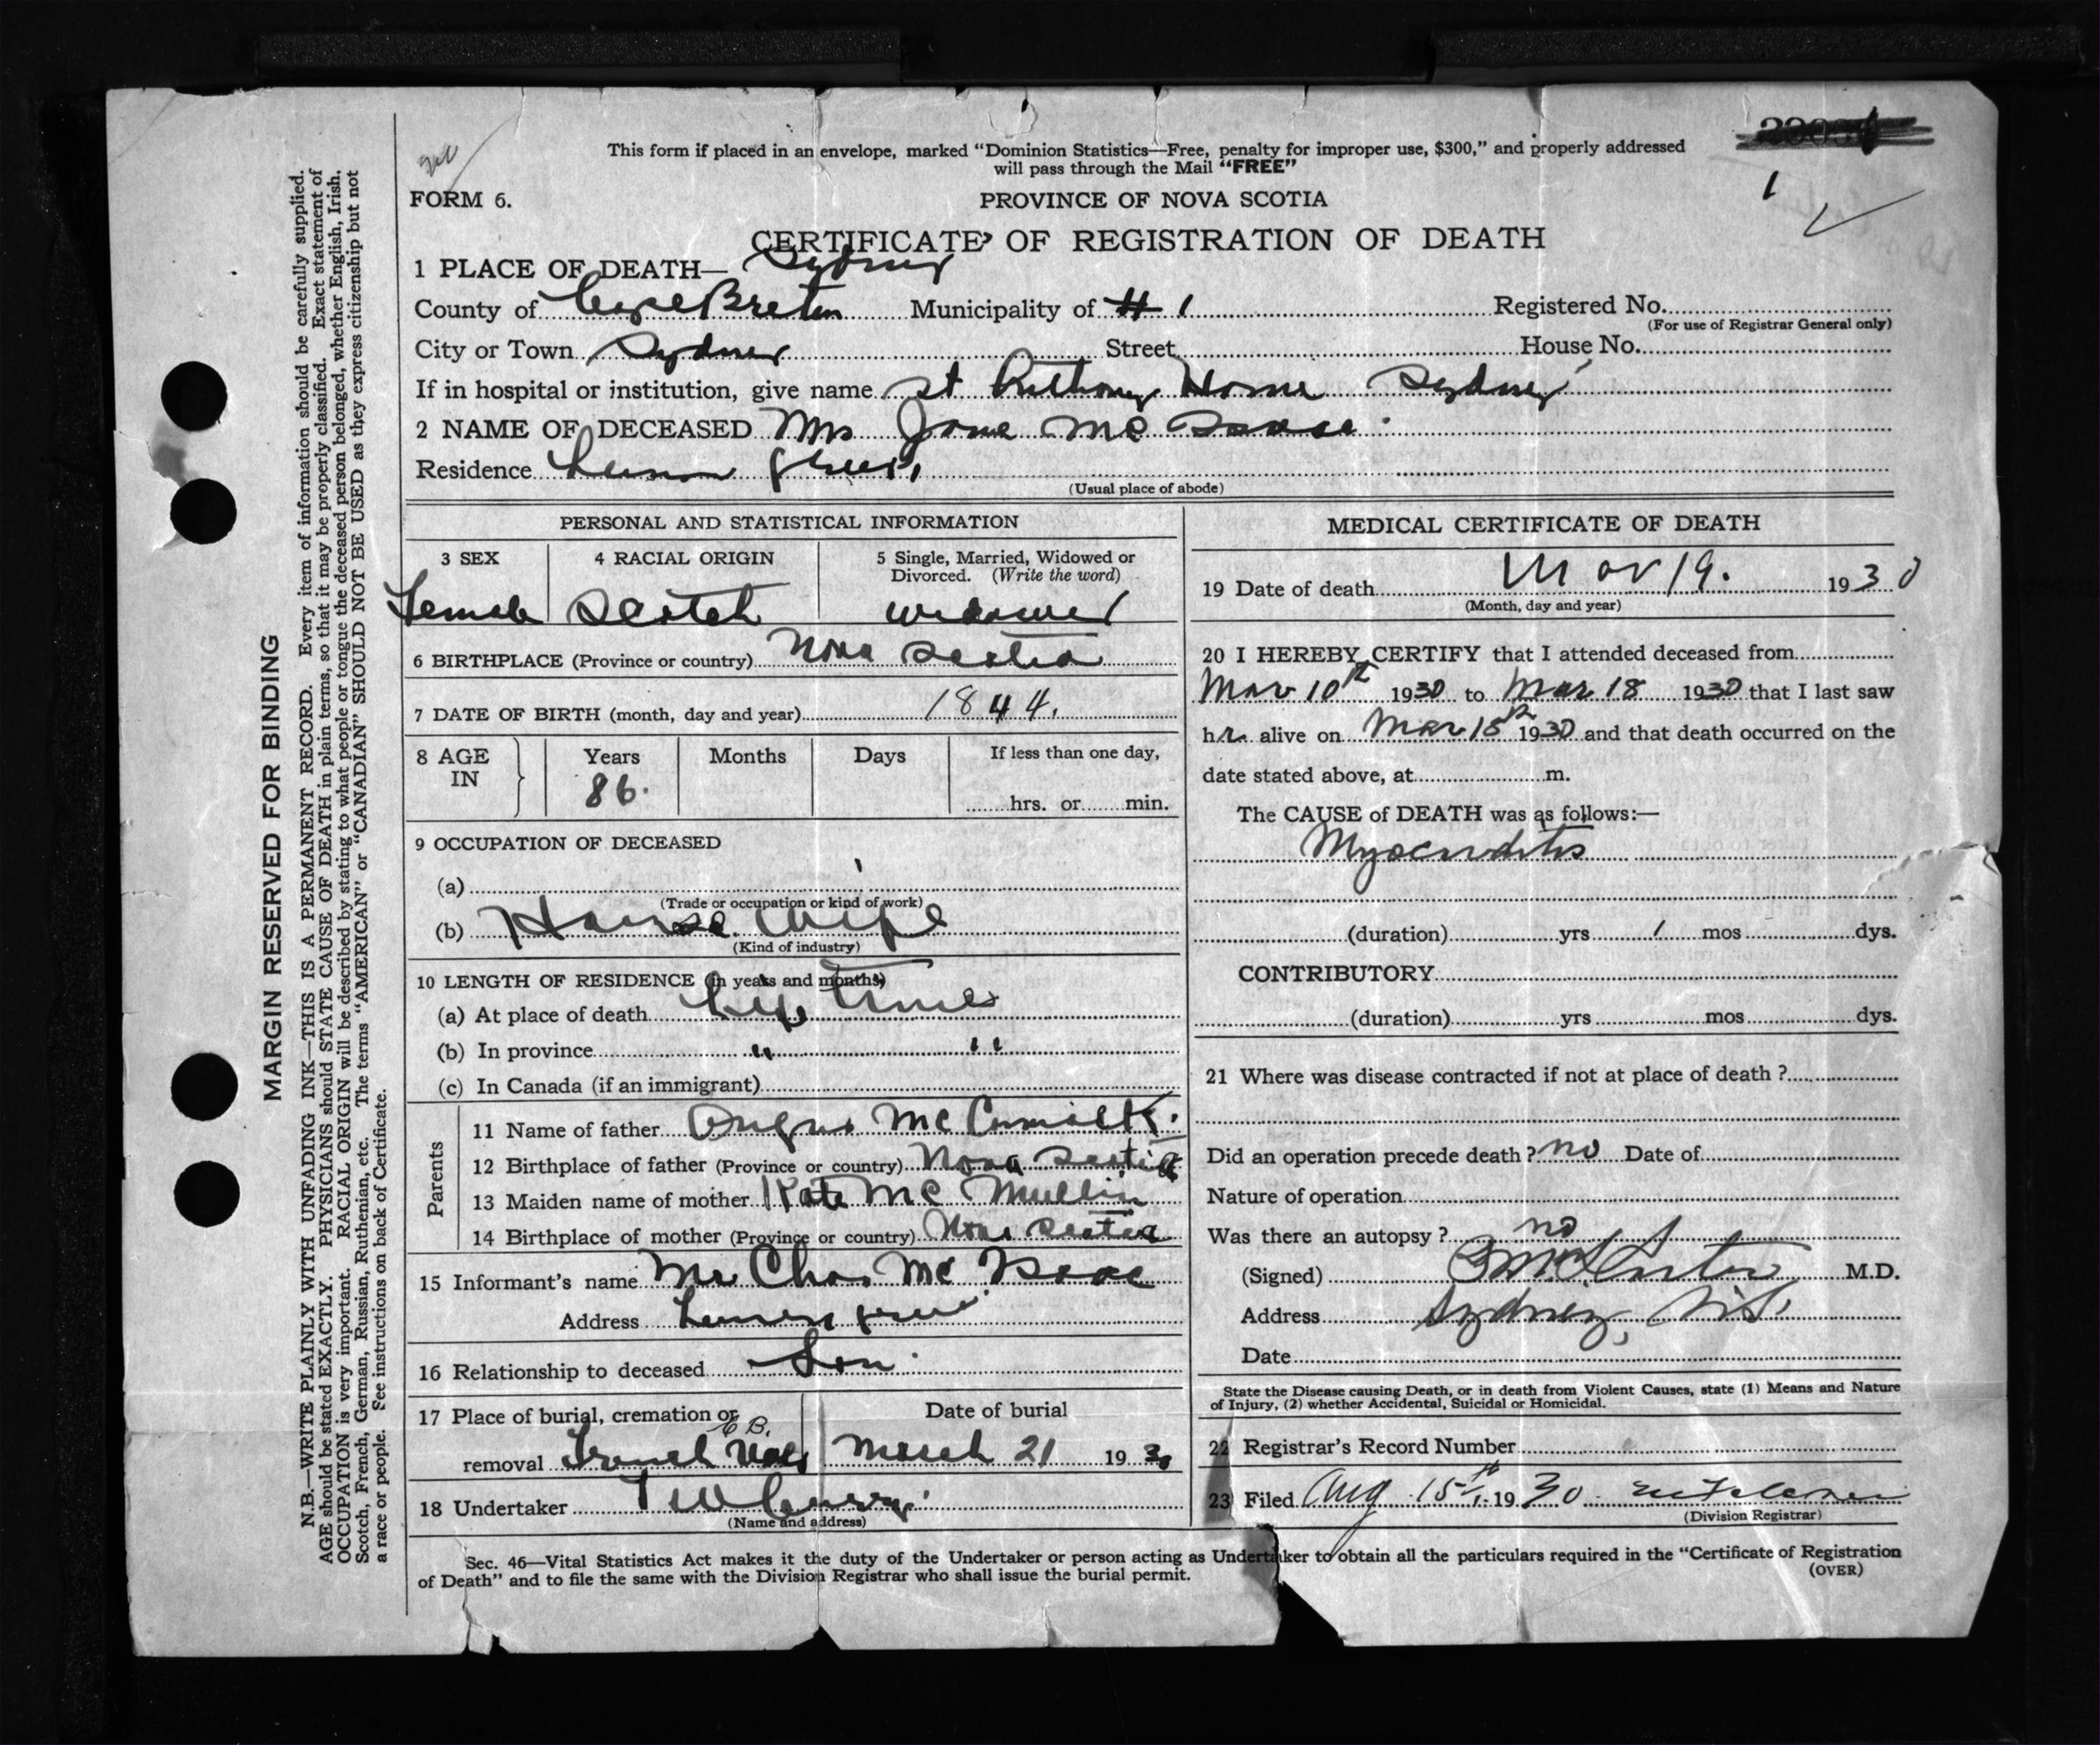 This form if placed in an envelope, marked “Dominion Statistics—Free, penalty for improper use, $300,” and properly addressed
will pass through the Mail “FREE”
FORM 6.
PROVINCE OF NOVA SCOTIA
1
CERTIFICATE OF REGISTRATION OF DEATH
1 PLACE OF DEATH— Sydney
County of Cape Breton Municipality of # 1 Registered No.
(For use of Registrar General only)
City or Town Sydney Street House No.
If in hospital or institution, give name St Anthony Home Sydney
2 NAME OF DECEASED Mrs Jane Mc Isaac
Residence
(Usual place of abode)
MARGIN RESERVED FOR BINDING
N.B.—WRITE PLAINLY WITH UNFADING INK—THIS IS A PERMANENT RECORD. Every item of information should be carefully supplied.
AGE should be stated EXACTLY. PHYSICIANS should STATE CAUSE OF DEATH in plain terms, so that it may be properly classified. Exact statement of
OCCUPATION is very important. RACIAL ORIGIN will be described by stating to what people or tongue the deceased person belonged, whether English, Irish,
Scotch, French, German, Russian, Ruthenian, etc. The terms “AMERICAN” or “CANADIAN” SHOULD NOT BE USED as they express citizenship but not
a race or people. See instructions on back of Certificate.
PERSONAL AND STATISTICAL INFORMATION
3 SEX
4 RACIAL ORIGIN
5 Single, Married, Widowed or
Divorced. (Write the word)
Female Scotch widowed
6 BIRTHPLACE (Province or country) Nova Scotia
7 DATE OF BIRTH (month, day and year) 1844.
8 AGE IN
Years Months Days If less than one day,
86.
hrs. or min.
9 OCCUPATION OF DECEASED
(a)
(Trade or occupation or kind of work)
(b) House Wife
(Kind of industry)
10 LENGTH OF RESIDENCE (in years and months)
(a) At place of death Life time
(b) In province " "
(c) In Canada (if an immigrant)
Parents
11 Name of father Angus Mc
12 Birthplace of father (Province or country) Nova Scotia
13 Maiden name of mother Kate Mc Mullin
14 Birthplace of mother (Province or country) Nova Scotia
15 Informant’s name Mr Chas Mc Isaac
Address
16 Relationship to deceased Son
17 Place of burial, cremation or
C B.
removal French Vale
Date of burial
March 21 1930
18 Undertaker T W Curry
(Name and address)
MEDICAL CERTIFICATE OF DEATH
19 Date of death Mar 19. 1930
(Month, day and year)
20 I HEREBY CERTIFY that I attended deceased from
Mar 10th 1930 to Mar 18 1930 that I last saw
her alive on Mar 18th 1930 and that death occurred on the
date stated above, at m.
The CAUSE of DEATH was as follows:—
Myocarditis
(duration) yrs 1 mos dys.
CONTRIBUTORY
(duration) yrs mos dys.
21 Where was disease contracted if not at place of death ?
Did an operation precede death ? no Date of
Nature of operation
Was there an autopsy ? no
(Signed) M.D.
Address Sydney, N.S.
Date
State the Disease causing Death, or in death from Violent Causes, state (1) Means and Nature
of Injury, (2) whether Accidental, Suicidal or Homicidal.
22 Registrar’s Record Number
23 Filed Aug 15th 1930
(Division Registrar)
Sec. 46—Vital Statistics Act makes it the duty of the Undertaker or person acting as Undertaker to obtain all the particulars required in the “Certificate of Registration
of Death” and to file the same with the Division Registrar who shall issue the burial permit.
(OVER)